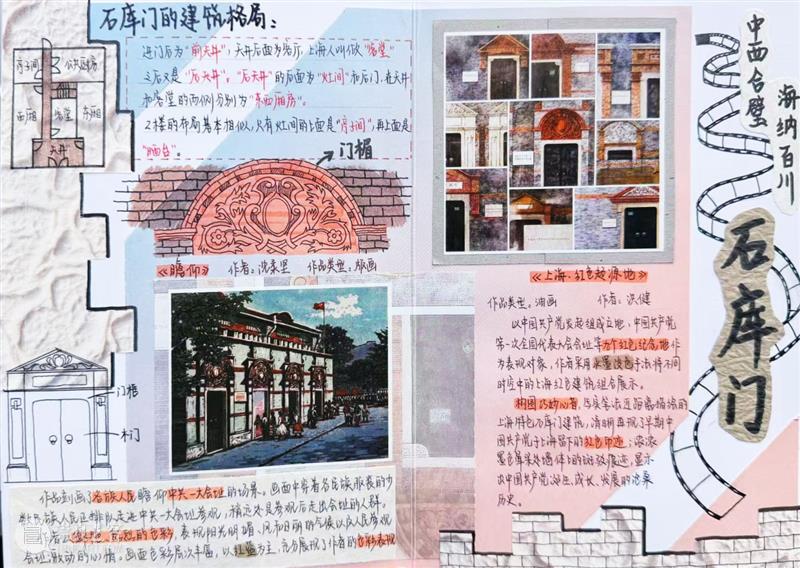 石库门的建筑格局：
进门后为“前天井”，天井后面为客厅，上海人叫做“客堂”
之后又是“后天井”。“后天井”的后面为“灶间”和后门，在天井
和客堂的两侧分别为“东西厢房”。
2楼的布局基本相似，只有灶间的上面是“亭子间”，再上面是
“晒台”。
亭子间
公共厨房
西厢
客堂
东厢
天井
门楣
《瞻仰》 作者：沈柔坚 作品类型：版画
门框
木门
作品刻画了各族人民瞻仰中共一大会址的场景。画面中穿着各民族服装的少
数民族人民正排队走进中共一大会址参观，稍远处是参观后走出会址的人群。
作者以热烈的色彩，表现阳光明媚、风和日丽的气候以及人民参观
会址激动的心情。画面色彩层次丰富，以红蓝为主，充分展现了作者的色彩表现
《上海·红色起源地》
作品类型：油画 作者：洪健
以中国共产党发起组成立地、中国共产党
第一次全国代表大会会址等九个红色纪念地作
为表现对象，作者采用水墨设色手法将不同
时空中的上海红色建筑组合展示。
构图巧妙心智，以类近距离描绘的
上海特色石库门建筑，清晰再现了早期中
国共产党于上海留下的红色印迹；浓淡
墨色晕染处墙体上的斑驳痕迹，显示
出中国共产党诞生、成长、发展的沧桑
历史。
中西合璧
海纳百川
石库门